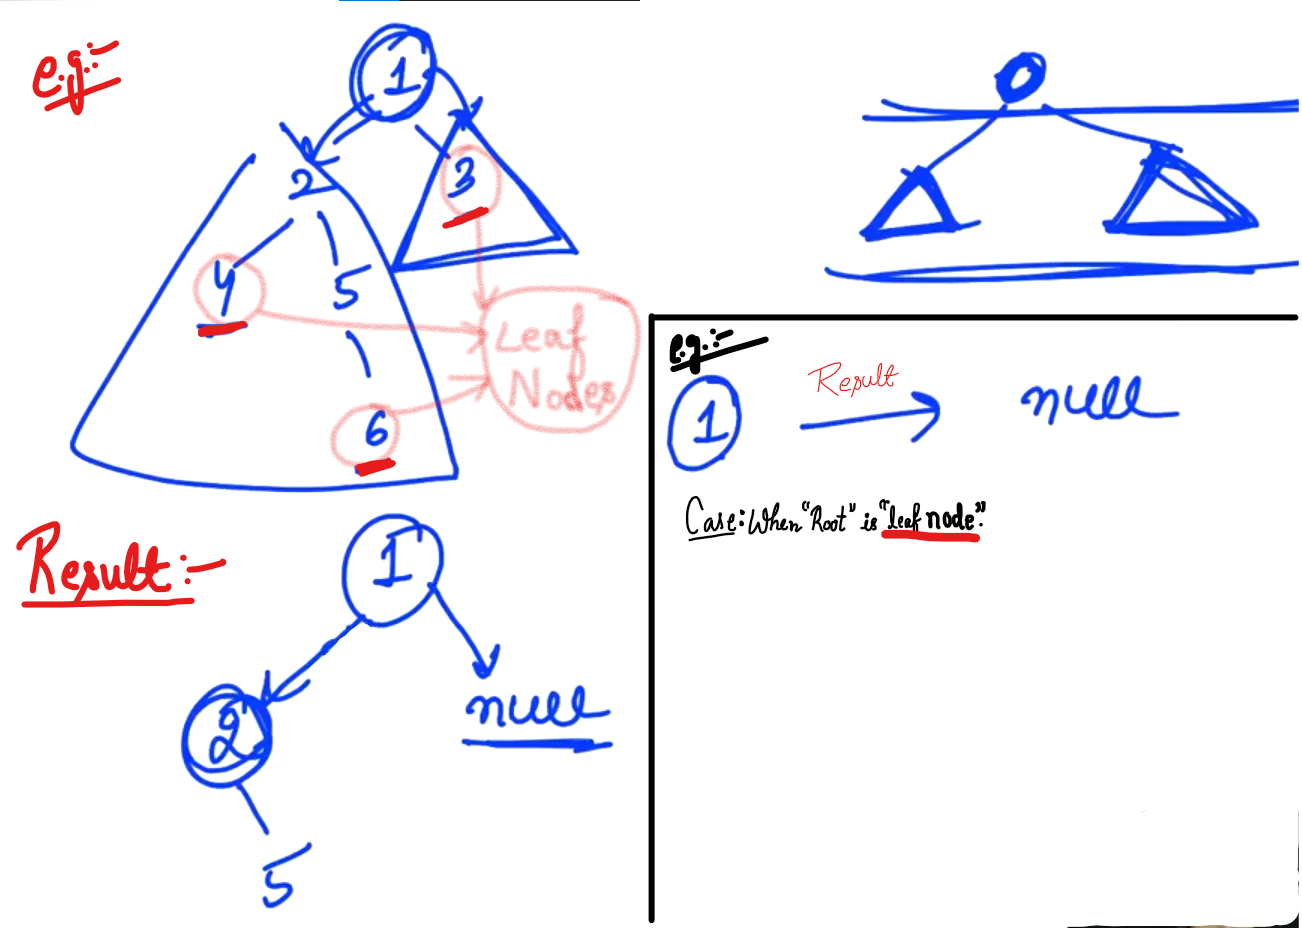 e.g:-
1
2
3
4
5
6
Leaf
Nodes
Result:-
1
2
null
5
e.g.:-
1
Result
null
Case: When "Root" is "leaf node".